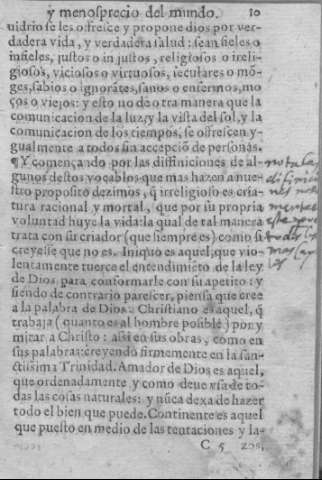 y menosprecio del mundo. 10
uidrio se les ofresce y propone dios por ver-
dadera vida, y verdadera salud: sean fieles o
infieles, justos o injustos, religiosos o ireli-
giosos, viciosos o virtuosos, seculares o mõ-
ges, sabios o ignorãtes, sanos o enfermos, mo
ços o viejos: y esto no de otra manera que la
comunicacion de la luz, y la vista del sol, y la
comunicacion de los tiempos, se offrescen y-
gualmente a todos sin accepciõ de personas.
¶Y començando por las diffiniciones de al-
gunos destos vocablos que mas hazen a nue-
stro proposito dezimos, q̃ irreligioso es cria-
tura racional y mortal, que por su propria
voluntad huye la vida: la qual de tal manera
trata con su criador (que siempre es) como si
creyesse que no es. Iniquo es aquel, que vio-
lentamente tuerce el entendimiẽto de la ley
de Dios para conformarle con su apetito: y
siendo de contrario parescer, piensa que cree
a la palabra de Dios. Christiano es aquel, q̃
trabaja (quanto es al hombre posible) por y
mitar a Christo: assi en sus obras, como en
sus palabras: creyendo firmemente en la san-
ctissima Trinidad. Amador de Dios es aquel,
que ordenadamente y como deue vsa de to-
das las cosas naturales: y nũca dexa de hazer
todo el bien que puede. Continente es aquel
que puesto en medio de las tentaciones y la-
C 5 zos,